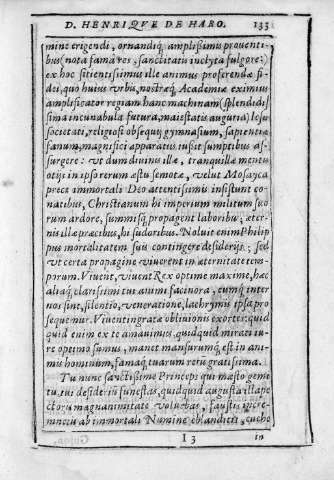 D. HENRIQVE DE HARO. 133
mine erigendi, ornandiq́; amplißimis prouenti-
bus (nota fama res, sanctitatis inclyta fulgore:)
ex hoc sitientißimus ille animus proferendæ fi-
dei, quo huius vrbis, nostræq́; Academiæ eximius
amplificator regiam hanc machinam (splendidis
sima incunabula futura, maiestatis auguria) Iesu
societati, religiosi obsequij gymnasium, sapientiæ
fanum, magnifici apparatus iußit sumptibus as-
surgere: vt dum diuini illæ, tranquillæ mentis
otijs in ipsorum æstu semotæ, velut Mosayca
prece immortali Deo attentißimis insistunt co-
natibus, Christianum hi imperium militum suo
rum ardore, summisq́; propagent laboribus; æter-
nis illæ præcibus, hi sudoribus. Noluit enim Philip
pus mortalitatem suis contingere desiderijs; sed
vt certa propagine viuerent in æternitate tem-
porum. Viuent, viuent Rex optime maxime, hæc
aliaq́; clarißimi tui animi facinora, cumq́; inter
nos sint, silentio, veneratione, lachrymis ipsa pro
sequemur. Viuent ingratæ obliuionis exortes; quid
quid enim ex te amauimus, quidquid mirati iu-
re optimo sumus, manet mansurumq́; est in ani-
mis hominum, famaq́; tuarum rerũ gratißima.
Tu nunc sanctißime Princeps qui mæsto gemi
tu, tui desiderin funestas, quidquid augusta illa pe
ctoris magnanimitate voluebas, faustis incre-
mentis ab immortali Numine eblanditis, euche
I 3 in